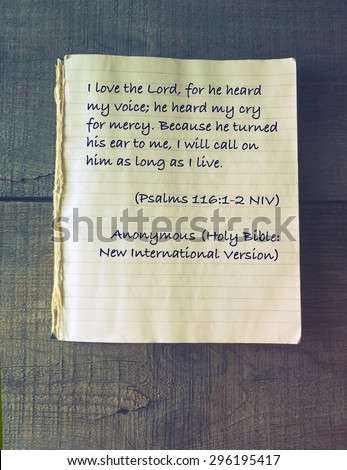 I love the Lord, for he heard
my voice; he heard my cry
for mercy. Because he turned
his ear to me, I will call on
him as long as I live.
(Psalms 116:1-2 NIV)
Anonymous (Holy Bible:
New International Version)
shutterstock
IMAGE ID: 296195417
www.shutterstock.com